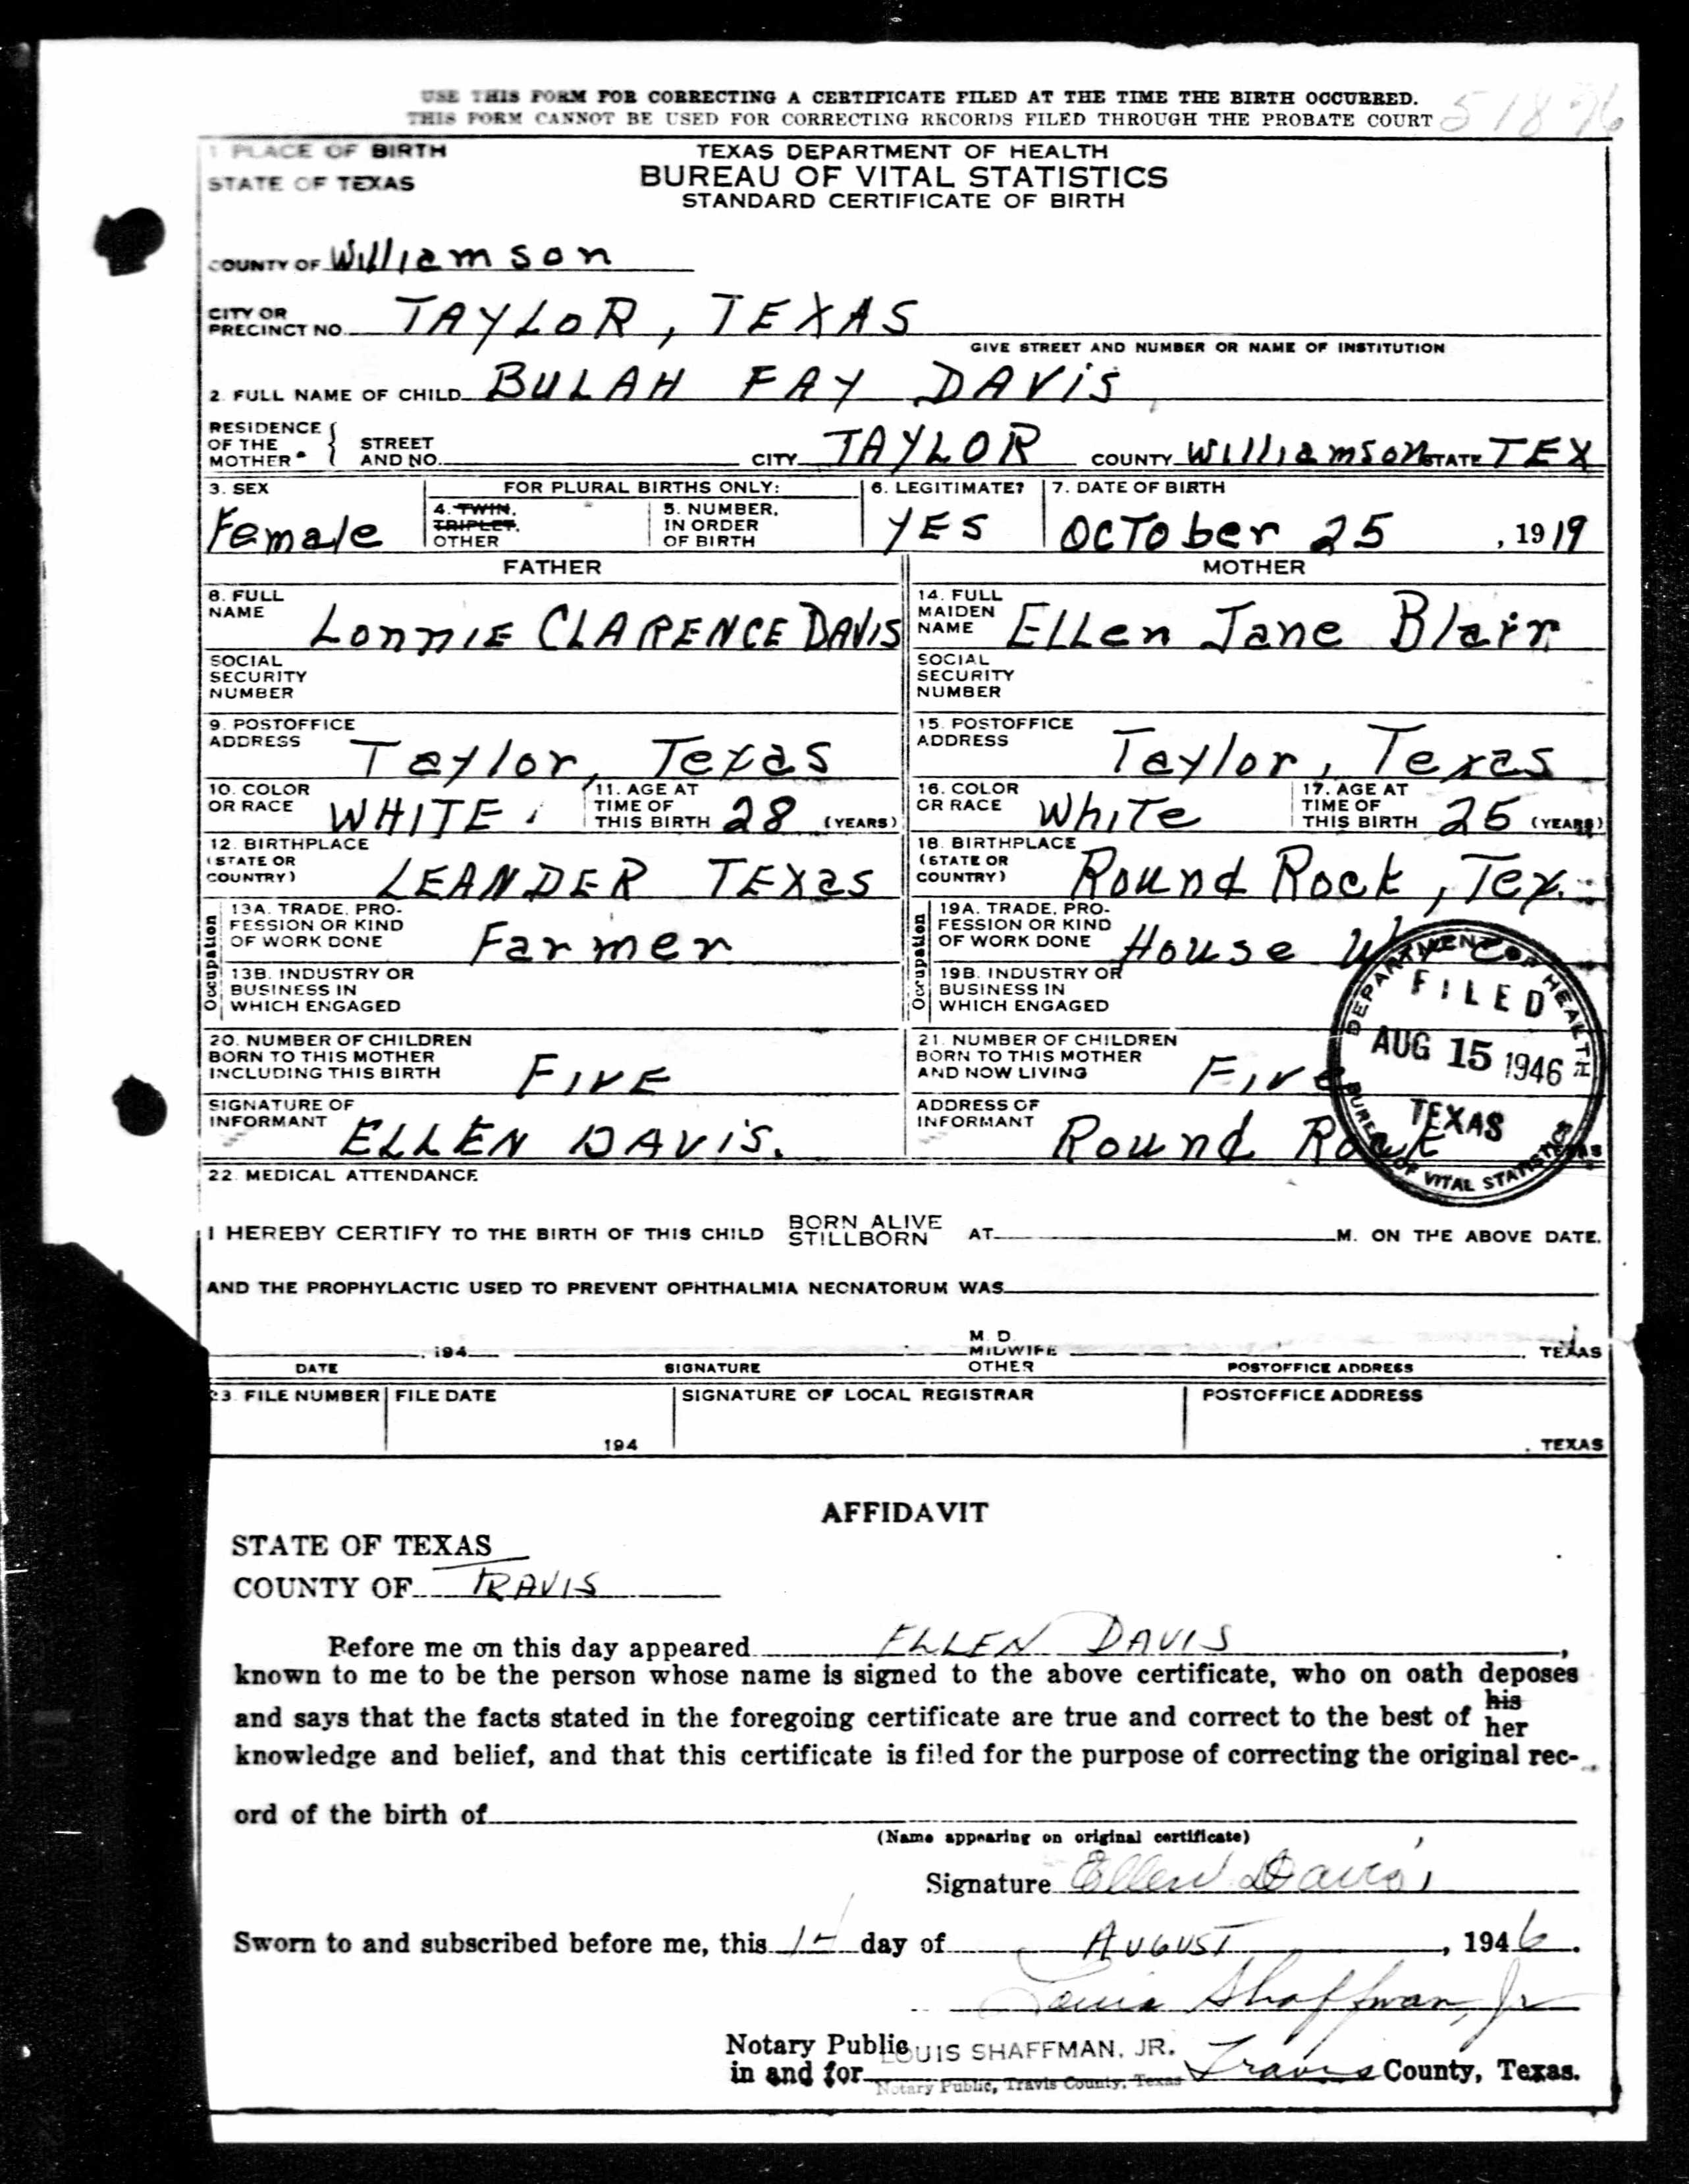 USE THIS FORM FOR CORRECTING A CERTIFICATE FILED AT THE TIME THE BIRTH OCCURRED.
THIS FORM CANNOT BE USED FOR CORRECTING RECORDS FILED THROUGH THE PROBATE COURT
1 PLACE OF BIRTH
STATE OF TEXAS
TEXAS DEPARTMENT OF HEALTH
BUREAU OF VITAL STATISTICS
STANDARD CERTIFICATE OF BIRTH
COUNTY OF Williamson
CITY OR PRECINCT NO. TAYLOR, TEXAS
GIVE STREET AND NUMBER OR NAME OF INSTITUTION
2. FULL NAME OF CHILD BULAH FAY DAVIS
RESIDENCE OF THE MOTHER STREET AND NO. CITY TAYLOR COUNTY Williamson STATE TEX
3. SEX Female
FOR PLURAL BIRTHS ONLY:
4. TWIN, TRIPLET, OTHER
5. NUMBER, IN ORDER OF BIRTH
6. LEGITIMATE? YES
7. DATE OF BIRTH OCTober 25, 1919
FATHER
MOTHER
8. FULL NAME LonnIE CLARENCE DAVIS
14. FULL MAIDEN NAME ELLen Jane Blair
SOCIAL SECURITY NUMBER
SOCIAL SECURITY NUMBER
9. POSTOFFICE ADDRESS Taylor, Texas
15. POSTOFFICE ADDRESS Taylor, Texas
10. COLOR OR RACE WHITE
11. AGE AT TIME OF THIS BIRTH 28 (YEARS)
16. COLOR OR RACE WhiTe
17. AGE AT TIME OF THIS BIRTH 25 (YEARS)
12. BIRTHPLACE (STATE OR COUNTRY) LEANDER TEXas
18. BIRTHPLACE (STATE OR COUNTRY) Round Rock, Tex.
Occupation
13A. TRADE, PROFESSION OR KIND OF WORK DONE Farmer
Occupation
19A. TRADE, PROFESSION OR KIND OF WORK DONE House
13B. INDUSTRY OR BUSINESS IN WHICH ENGAGED
19B. INDUSTRY OR BUSINESS IN WHICH ENGAGED
20. NUMBER OF CHILDREN BORN TO THIS MOTHER INCLUDING THIS BIRTH FIVE
21. NUMBER OF CHILDREN BORN TO THIS MOTHER AND NOW LIVING Five
SIGNATURE OF INFORMANT ELLEN DAVIS.
ADDRESS OF INFORMANT Round Rock
DEPARTMENT OF HEALTH
FILED
AUG 15 1946
TEXAS
BUREAU OF VITAL STATISTICS
22. MEDICAL ATTENDANCE
I HEREBY CERTIFY TO THE BIRTH OF THIS CHILD BORN ALIVE STILLBORN AT M. ON THE ABOVE DATE.
AND THE PROPHYLACTIC USED TO PREVENT OPHTHALMIA NEONATORUM WAS
, 194 M. D. MIDWIFE OTHER , TEXAS
DATE SIGNATURE POSTOFFICE ADDRESS
23. FILE NUMBER FILE DATE SIGNATURE OF LOCAL REGISTRAR POSTOFFICE ADDRESS
194 , TEXAS
AFFIDAVIT
STATE OF TEXAS
COUNTY OF TRAVIS
Before me on this day appeared ELLEN DAVIS,
known to me to be the person whose name is signed to the above certificate, who on oath deposes
and says that the facts stated in the foregoing certificate are true and correct to the best of his her
knowledge and belief, and that this certificate is filed for the purpose of correcting the original rec-
ord of the birth of
(Name appearing on original certificate)
Signature Ellen Davis
Sworn to and subscribed before me, this day of AUGUST, 1946.
Louis Shaffman, Jr
Notary Public LOUIS SHAFFMAN, JR.
in and for Notary Public, Travis County, Texas Travis County, Texas.